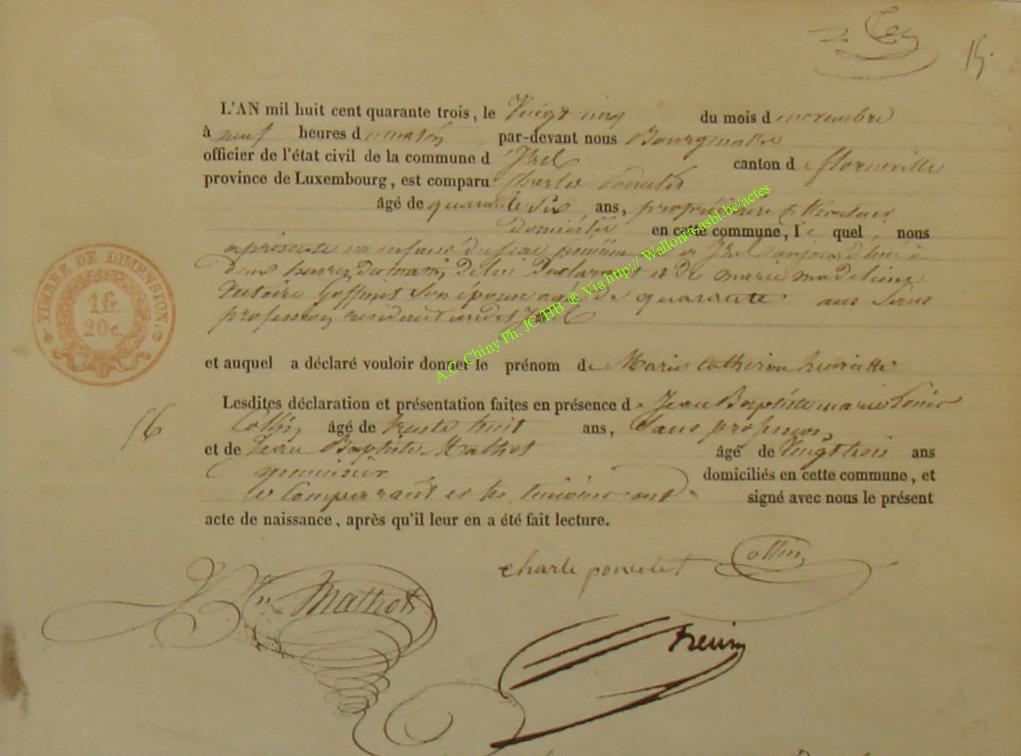 15.
L'AN mil huit cent quarante trois, le Vingt cinq du mois de novembre
à neuf heures du matin par-devant nous Bourgmestre
officier de l'état civil de la commune d'Izel canton de florenville
province de Luxembourg, est comparu Charles Poncelet
âgé de quarante six ans, propriétaire
domicilié en cette commune, le quel nous
a présenté un enfant du sexe féminin né à Izel aujourd'hui à
deux heures du matin, de lui déclarant et de marie madeleine
Victoire Goffinet son épouse agée de quarante ans sans
profession, résidant audit Izel
et auquel a déclaré vouloir donner le prénom de Marie Catherine henriette
Lesdites déclaration et présentation faites en présence de Jean Baptiste marie Louis
16 Collin âgé de trente huit ans, sans profession,
et de Jean Baptiste Mathot âgé de Vingt trois ans
menuisier domiciliés en cette commune, et
le comparant et les témoins ont signé avec nous le présent
acte de naissance, après qu'il leur en a été fait lecture.
charle poncelet Collin
Mathot
TIMBRE DE DIMENSION.
1 fr.
20 c.
A.C. Chiny Ph. JC/HB ® Via http:// Wallonia-asbl.be/actes